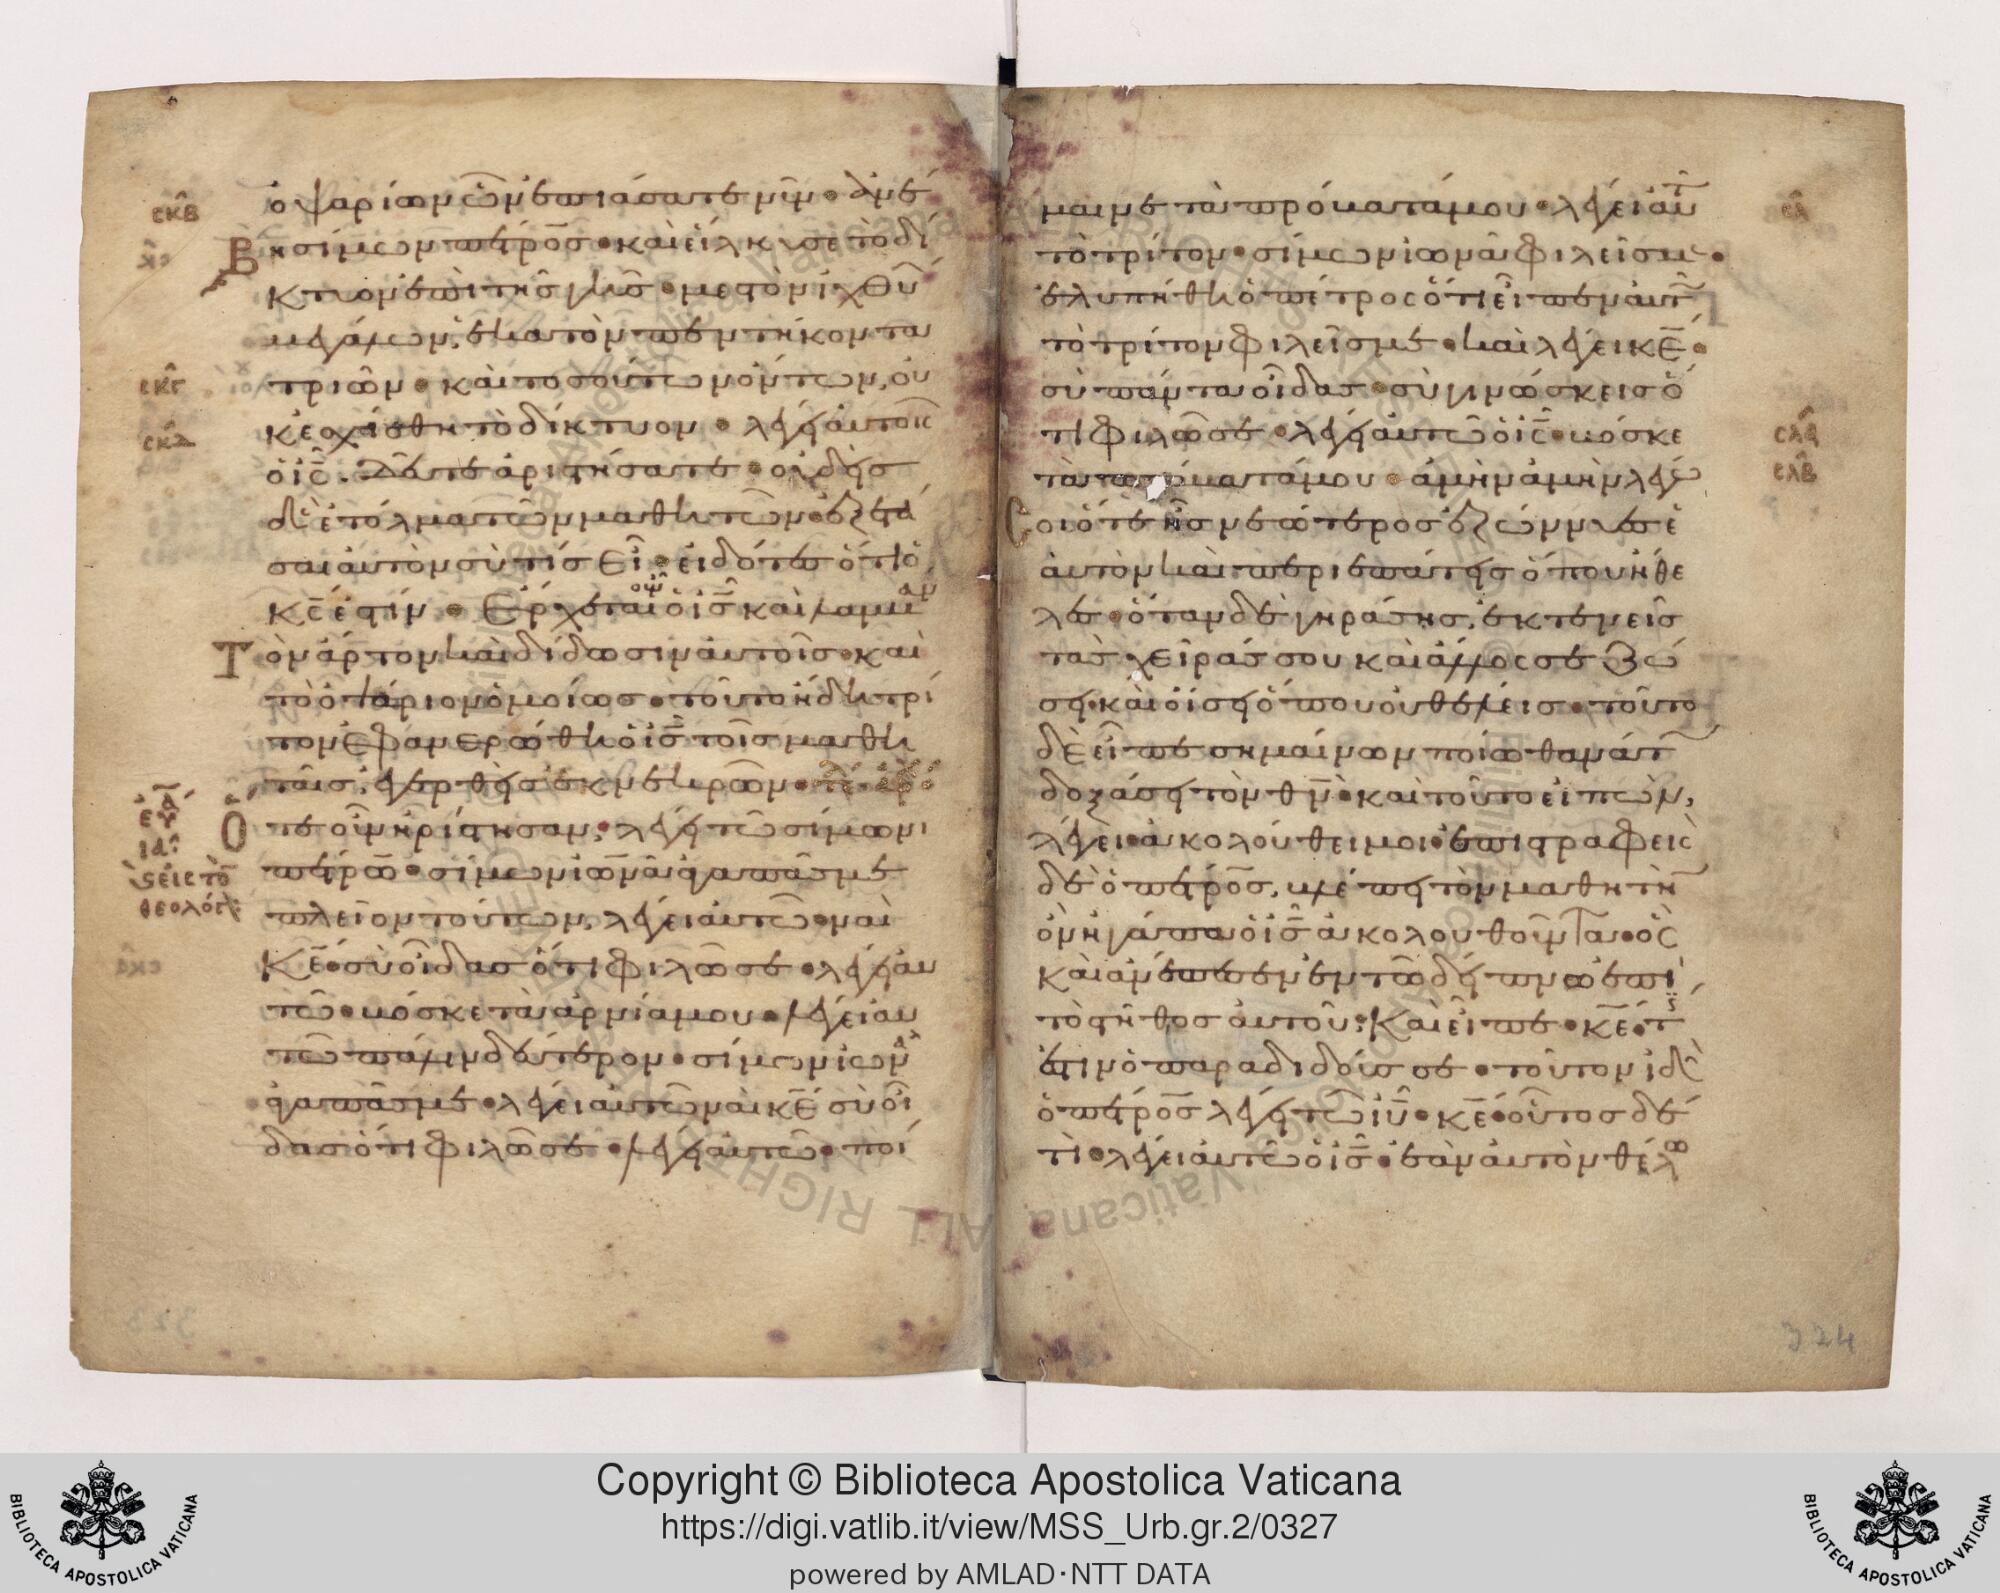 ὀψαρίων ὧν ἐπιάσατε νῦν · ἀνέ
βη σίμων πέτρος · καὶ εἵλκυσε τὸ δί
κτυον ἐπὶ τῆς γῆς · μεστὸν ἰχθύ
μεγάλων, ἑκατὸν πεντήκοντα
τριῶν · καὶ τοσούτων ὄντων, οὐ
κ ἐσχίσθη τὸ δίκτυον · λέγει αὐτοῖς
ὁ ις · δεῦτε ἀριστήσατε · οὐδεὶς
δὲ ἐτόλμα τῶν μαθητῶν ἐξετά
σαι αὐτὸν σὺ τίς εἶ · εἰδότες ὅτι ὁ
κς ἐστίν · ἔρχεται οὖν ὁ ις καὶ λαμβάν
τὸν ἄρτον καὶ δίδωσιν αὐτοῖς · καὶ
τὸ ὀψάριον ὁμοίως · τοῦτο ἤδη τρί
τον ἐφανερώθη ὁ ις τοῖς μαθη
ταῖς, ἐγερθεὶς ἐκ νεκρῶν ·
ὅτε οὖν ἠρίστησαν, λέγει τῶ σίμωνι
πέτρω · σίμων ἰωνᾶ ἀγαπᾶς με
πλεῖον τούτων, λέγει αὐτῶ · ναὶ
κε · σὺ οἶδας ὅτι φιλῶ σε · λέγει αὐ
τῶ · βόσκε τὰ ἀρνία μου · λέγει αὐ
τῶ πάλιν δεύτερον · σίμων ἰωνᾶ
ἀγαπᾶς με · λέγει αὐτῶ ναὶ κε σὺ οἶ
δας ὅτι φιλῶ σε · λέγει αὐτῶ · ποί
σκβ
σκγ
σκδ
εἰς τὸν
θεολόγ
μαινε τὰ πρόβατά μου · λέγει αὐτ
τὸ τρίτον · σίμων ἰωνᾶ φιλεῖς με ·
ἐλυπήθη ὁ πέτρος ὅτι εἶπεν αὐτ
τὸ τρίτον φιλεῖς με · καὶ λέγει κε ·
σὺ πάντα οἶδας · σὺ γινώσκεις ὅ
τι φιλῶ σε · λέγει αὐτῶ ὁ ις · βόσκε
τὰ πρόβατά μου · ἀμὴν ἀμὴν λέγω
σοι ὅτε ἦς νεώτερος ἐζώννυες ἑ
αυτὸν καὶ περιεπάτεις ὅπου ἤθε
λες · ὅταν δὲ γηράσης, ἐκτενεῖς
τὰς χεῖράς σου καὶ ἄλλος σε ζώ
σει · καὶ οἴσει ὅπου οὐ θέλεις · τοῦτο
δὲ εἶπε σημαίνων ποίω θανάτ
δοξάσει τὸν θν · καὶ τοῦτο εἰπὼν,
λέγει · ἀκολούθει μοι · ἐπιστραφεὶς
δὲ ὁ πέτρος, βλέπει τὸν μαθητὴν
ὃν ἠγάπα ὁ ις ἀκολουθοῦντα · ὃς
καὶ ἀνέπεσεν ἐν τῶ δείπνω ἐπὶ
τὸ στῆθος αὐτοῦ · καὶ εἶπε · κε · τίς
ἐστιν ὁ παραδιδούς σε · τοῦτον ἰδὼ
ὁ πέτρος λέγει τῶ ιυ · κε · οὗτος δὲ
τί · λέγει αὐτῶ ὁ ις · ἐὰν αὐτὸν θέλω
σλ
σλα
σλβ
324
Copyright © Biblioteca Apostolica Vaticana
https://digi.vatlib.it/view/MSS_Urb.gr.2/0327
powered by AMLAD·NTT DATA
BIBLIOTECA APOSTOLICA VATICANA
BIBLIOTECA APOSTOLICA VATICANA